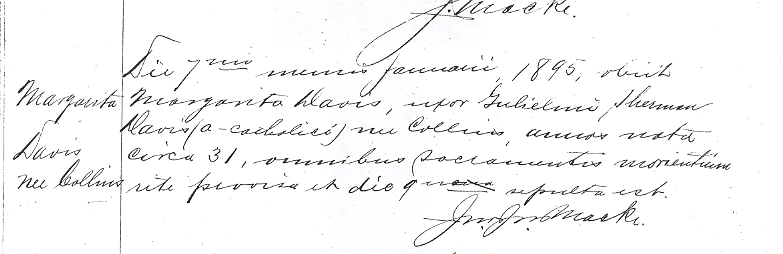 J. Macke.
Die 7mo mensis Januarii, 1895, obiit
Margarita Margarita Davis, uxor Gulielmi Sherman
Davis (a-catholici) nee Collins, annos nata
Davis circa 31, omnibus sacramentis morientium
nee Collins rite provisa et die sepulta est.
Jno. Macke.